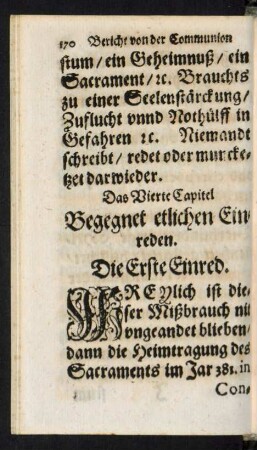 170 Bericht von der Communion
stum / ein Geheimnuß / ein
Sacrament / ꝛc. Brauchts
zu einer Seelenstärckung /
Zuflucht vnnd Nothülff in
Gefahren ꝛc. Niemandt
schreibt / redet oder murcke-
tzet darwieder.
Das Vierte Capitel
Begegnet etlichen Ein
reden.
Die Erste Einred.
FREylich ist die-
ser Mißbrauch nit
vngeandet blieben /
dann die Heimtragung des
Sacraments im Jar 381. in
Con-